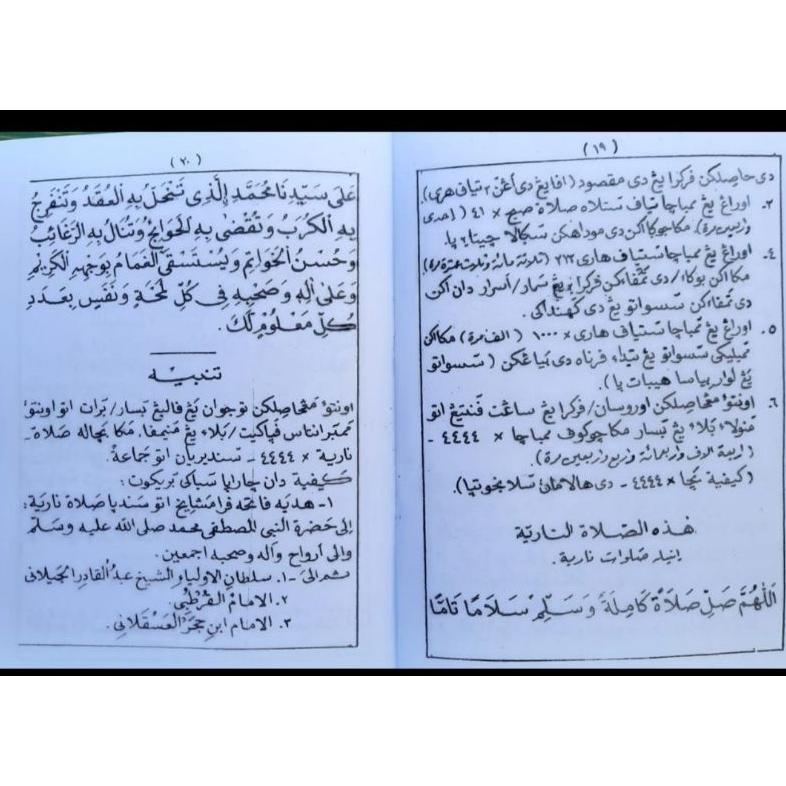 (١٩)
دي حاصيلكن فركرا يڠ دي مقصود (افا يڠ دي أڠن٢ تياف هري).
٣. اوراڠ يڠ ممباچا تياف ستلاه صلاة صبح × ٤١ (احدى
واربعين مرة). مكا جوݢا اكن دي مودهكن سݢالا چيتا٢ ڽا.
٤. اوراڠ يڠ ممباچا ستياف هاري × ٣١٣ (ثلاثة مائة وثلاث عشرة مرة)
مكا اكن بوكا/دي فركرا يڠ سمار/أسرار دان اكن
دي سسواتو يڠ دي كهندكي.
٥. اوراڠ يڠ ممباچا ستياف هاري × ١٠٠٠ (الف مرة) مكا اكن
سسواتو يڠ تيدا، فرناه دي (سسواتو
يڠ لوار بياسا هيبات ڽا).
٦. اونتوء مڠحاصيلكن اوروسان/فركرا يڠ ساڠت فنتيڠ اتو
منولاء بلاء يڠ بسار مكا چوكوف ممباچا × ٤٤٤٤ -
(اربعة الاف واربعمائة واربع واربعين مرة)
(كيفية بچا × ٤٤٤٤ - دي هالامان سلانجوتڽا).
هذه الصلاة النارية
اينيله صلوات نارية.
اَللّٰهُمَّ صَلِّ صَلَاةً كَامِلَةً وَسَلِّمْ سَلَامًا تَامًّا
(٢٠)
عَلَى سَيِّدِنَا مُحَمَّدِ الَّذِى تَنْحَلُّ بِهِ الْعُقَدُ وَتَنْفَرِجُ
بِهِ الْكُرَبُ وَتُقْضَى بِهِ الْحَوَائِجُ وَتُنَالُ بِهِ الرَّغَائِبُ
وَحُسْنُ الْخَوَاتِمِ وَيُسْتَسْقَى الْغَمَامُ بِوَجْهِهِ الْكَرِيْمِ
وَعَلَى اٰلِهِ وَصَحْبِهِ فِى كُلِّ لَمْحَةٍ وَنَفَسٍ بِعَدَدِ
كُلِّ مَعْلُوْمٍ لَكَ.
تنبيه
اونتوء مڠحاصيلكن توجوان يڠ فاليڠ بسار/برات اتو اونتوء
ممبراناس فڽاكيت/بلاء يڠ منيمفا. مكا بچاله صلاة -
نارية × ٤٤٤٤ - سنديريان اتو جماعة.
كيفية دان چاراڽا سباݢي بريكوت:
١- هديه فاتحه فرا مشايخ اتو سندڽا صلاة نارية:
إلى حضرة النبي المصطفى محمد صلى الله عليه وسلم
والى أرواح وآله وصحبه اجمعين.
ثم الى - ١. سلطان الاولياء الشيخ عبد القادر الجيلانى
٢. الامام القرطبى
٣. الامام ابن حجر العسقلانى.